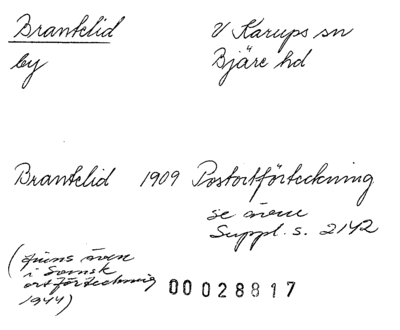 Brantelid
V Karups sn
by
Bjäre hd
Brantelid 1909 Postortförteckning
se även
Suppl. s. 2142
(finns även
i Svensk
ortförteckning
1944)
00028817